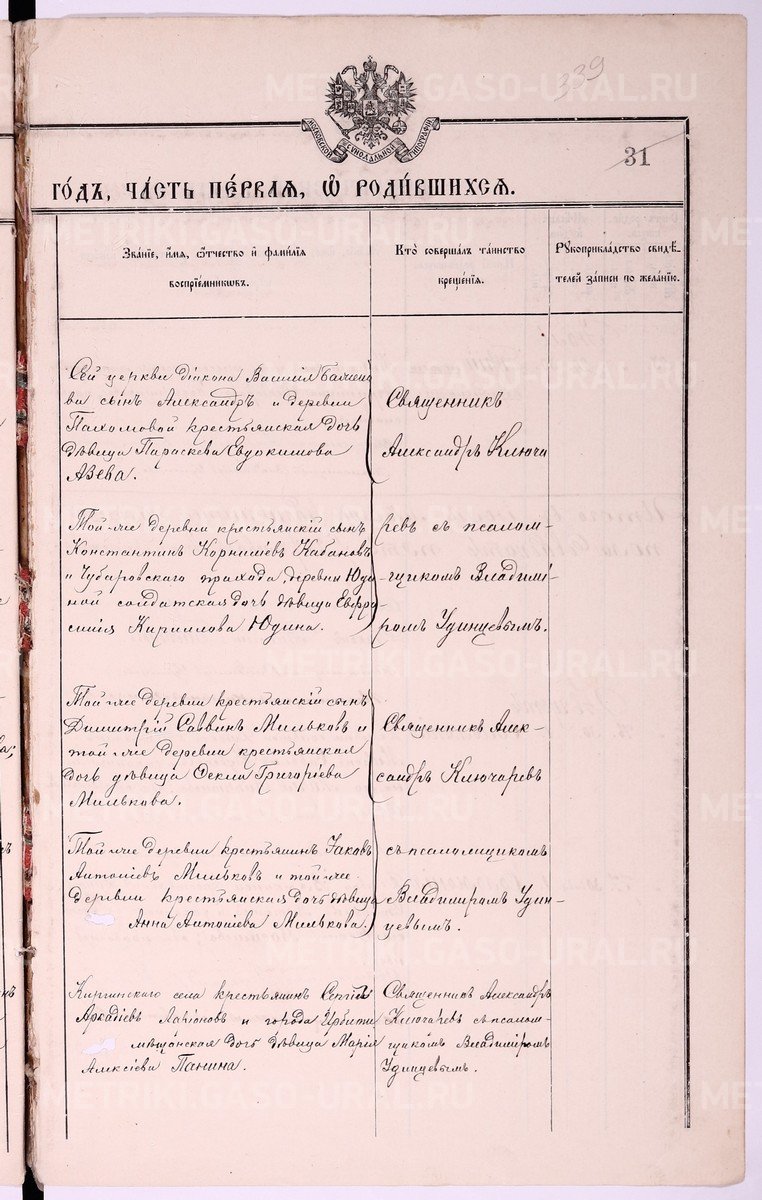 339
31
МОСКОВСКОЙ СѴНОДАЛЬНОЙ ТИПОГРАФІИ
ГО́ДЪ, ЧА́СТЬ ПЕ́РВАѦ, Ѿ РОДИ́ВШИХСѦ.
Зва́нїе, и҆́мѧ, ѻ҆́тчество и҆ фами́лїѧ
воспрїе́мникѡвъ.
Кто̀ соверша́лъ та́инство
креще́нїѧ.
Рꙋкоприкла́дство свидѣ́-
телей за́писи по жела́нїю.
Сей церкви діакона Василія
ва сынъ Александръ и деревни
Пахомовой крестьянская дочь
дѣвица Параскева Евдокимова
Азева.
Священникъ
Александръ Ключа
Той-же деревни крестьянскій сынъ
Константинъ Корниліевъ Кабановъ
и Чубаровскаго прихода, деревни Юди
ной солдатская дочь дѣвица Евфро
синія Кириллова Юдина.
ревъ съ псалом-
щикомъ Владимі-
ромъ Удинцевымъ.
Той-же деревни крестьянскій сынъ
Димитрій Саввинъ Мильковъ и
той-же деревни крестьянская
дочь дѣвица Ѳекла Григоріева
Милькова.
Священникъ Алек-
сандръ Ключаревъ
Той-же деревни крестьянинъ Іаковъ
Антоніевъ Мильковъ и той-же
деревни крестьянская дочь дѣвица
Анна Антоніева Милькова.
съ псаломщикомъ
Владимиромъ Удин-
цевымъ.
Киргинскаго села крестьянинъ Сергій
Аркадіевъ Ларіоновъ и города Ирбити
мѣщанская дочь дѣвица Марія
Алексіева Панина.
Священникъ Александръ
Ключаревъ съ псалом-
щикомъ Владиміромъ
Удинцевымъ.
METRIKI.GASO-URAL.RU
METRIKI.GASO-URAL.RU
METRIKI.GASO-URAL.RU
METRIKI.GASO-URAL.RU
METRIKI.GASO-URAL.RU
METRIKI.GASO-URAL.RU
METRIKI.GASO-URAL.RU
METRIKI.GASO-URAL.RU